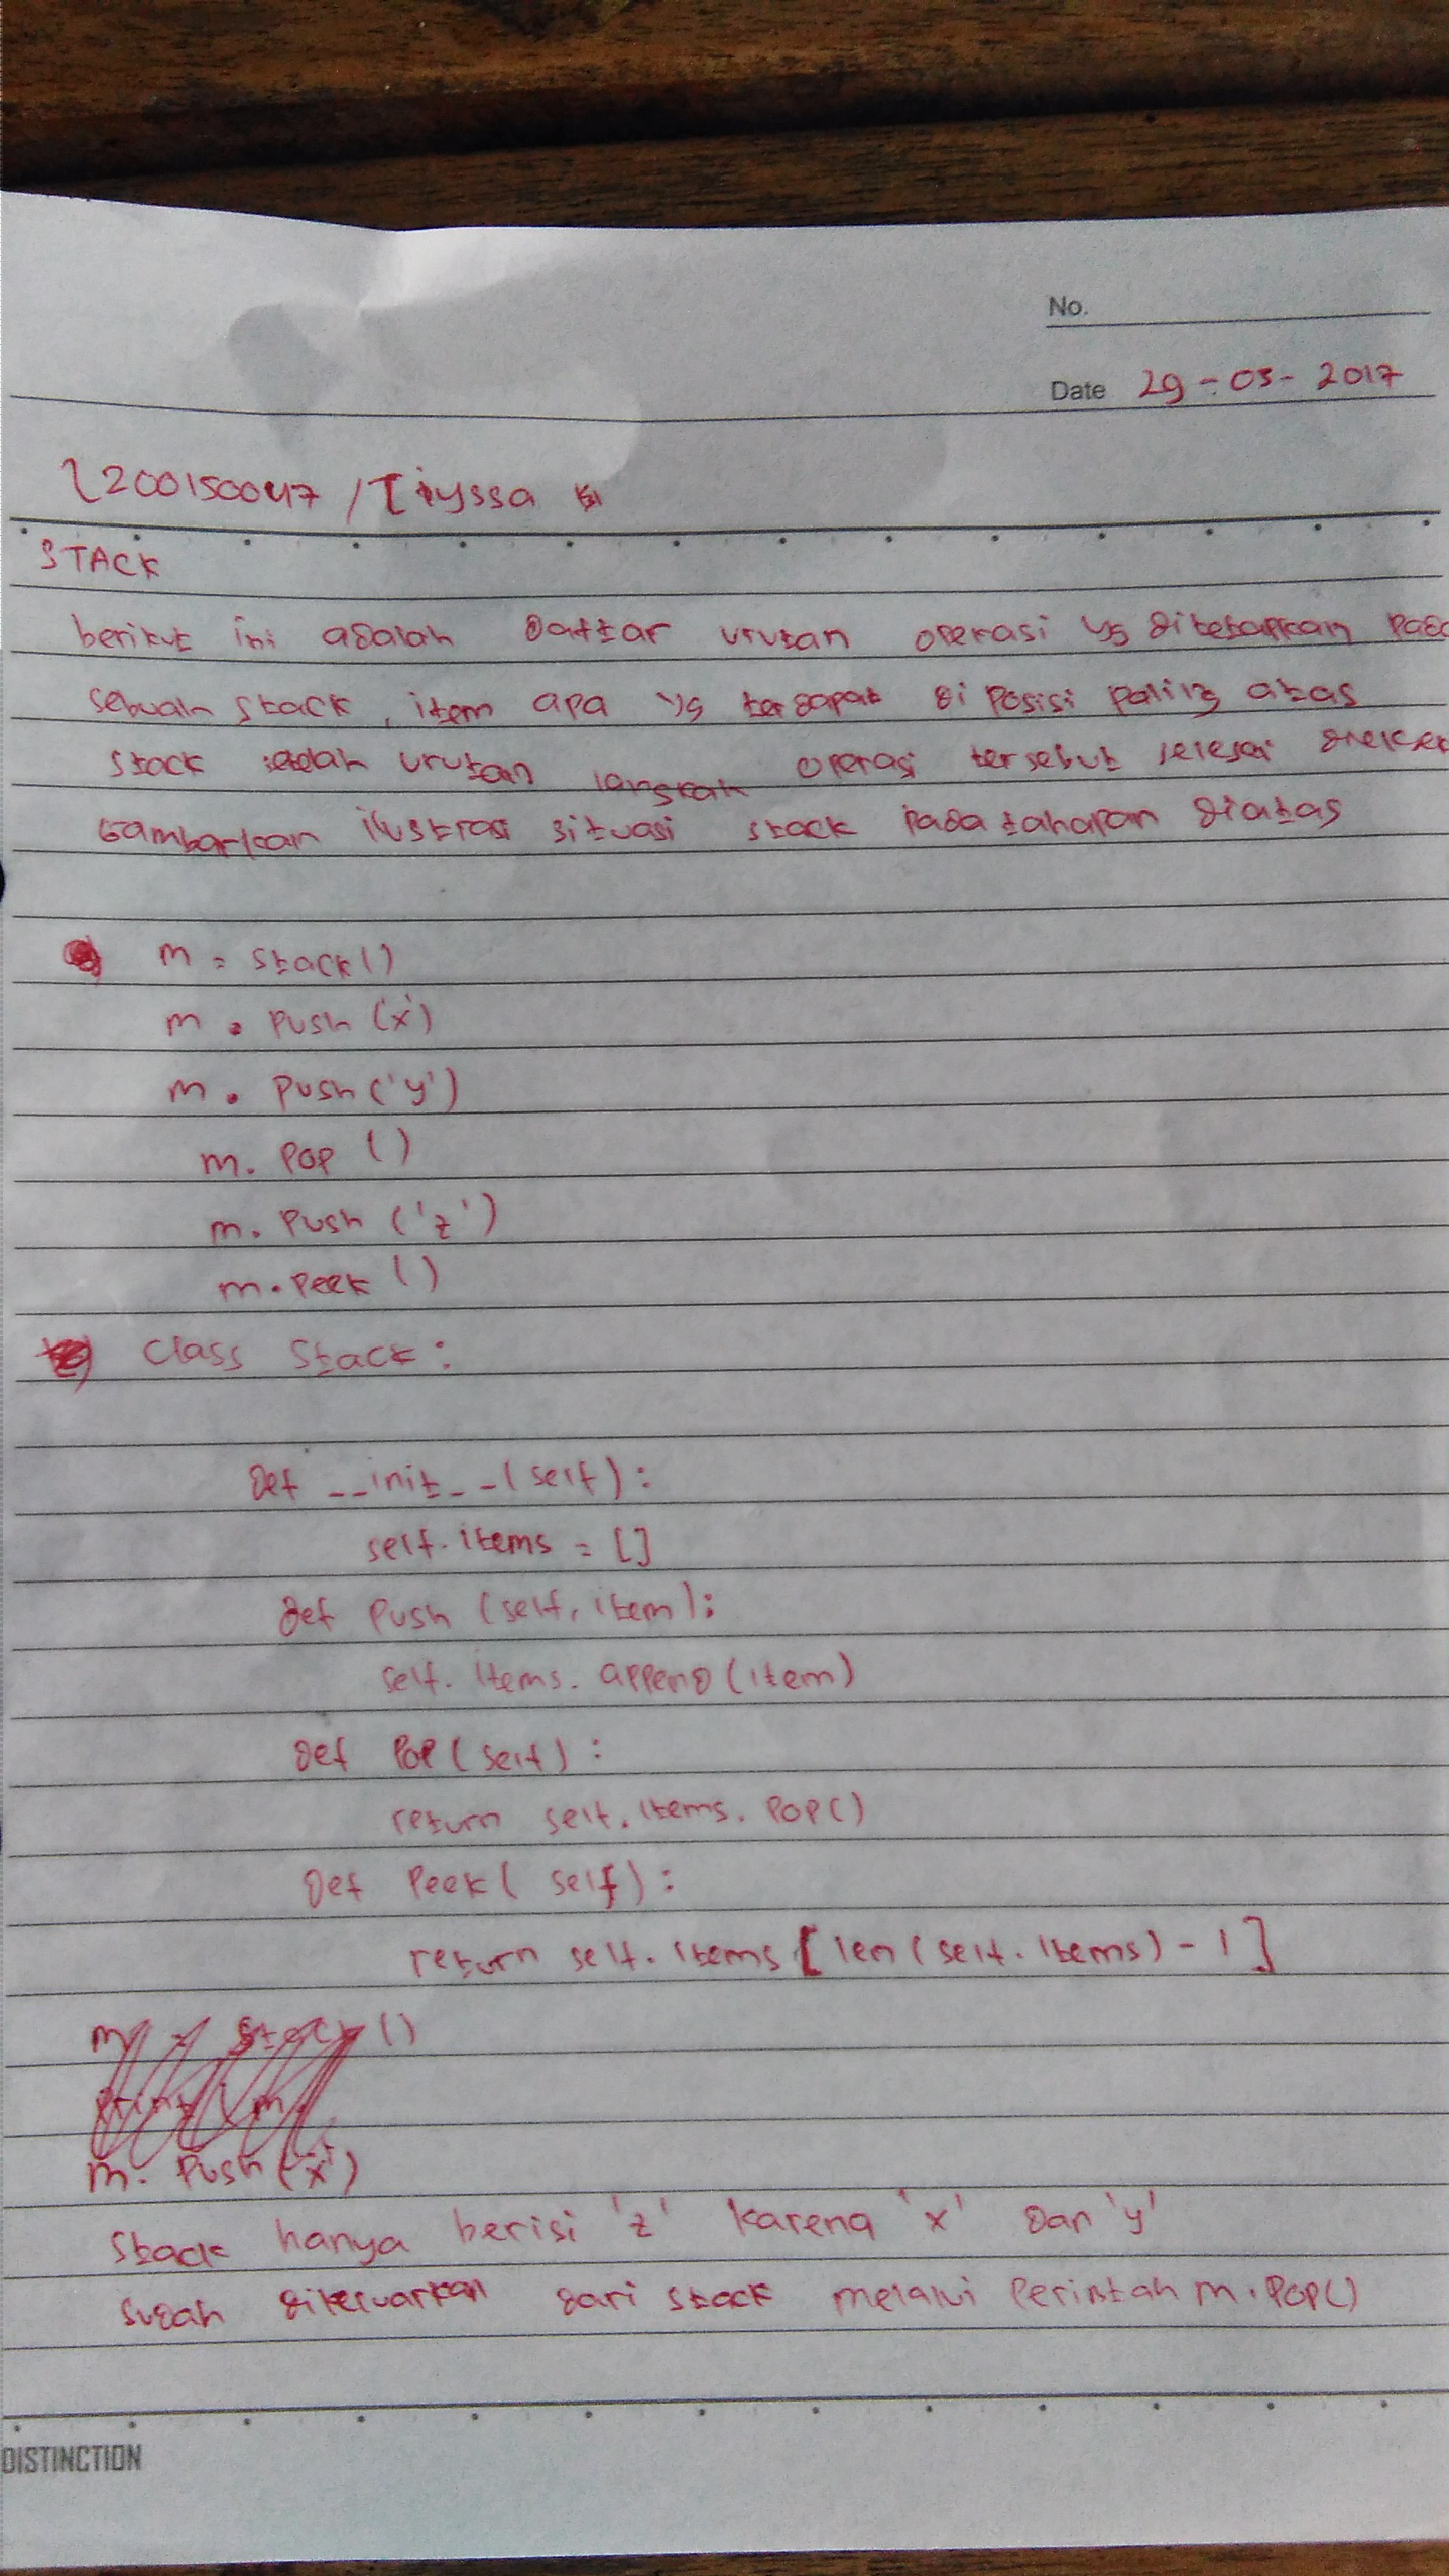 No.
Date 29-03-2017
L200150047 / Tiyssa
STACK
berikut ini adalah Daftar urutan operasi yg ditetapkan pada
sebuah stack, item apa yg terdapat di posisi paling atas
stack setelah urutan langkah operasi tersebut selesai
Gambarkan ilustrasi situasi stack pada tahapan diatas
m = stack()
m . push ('x')
m . push ('y')
m. pop ()
m. push ('z')
m. peek ()
Class Stack:
def __init__(self):
self. items = []
def push (self, item):
self. items. append (item)
def pop (self) :
return self. items. pop()
def peek ( self) :
return self. items [len (self. items) - 1]
m = stack ()
m. push ('x')
Stack hanya berisi 'z' karena 'x' dan 'y'
sudah dikeluarkan dari stack melalui perintah m. pop()
DISTINCTION